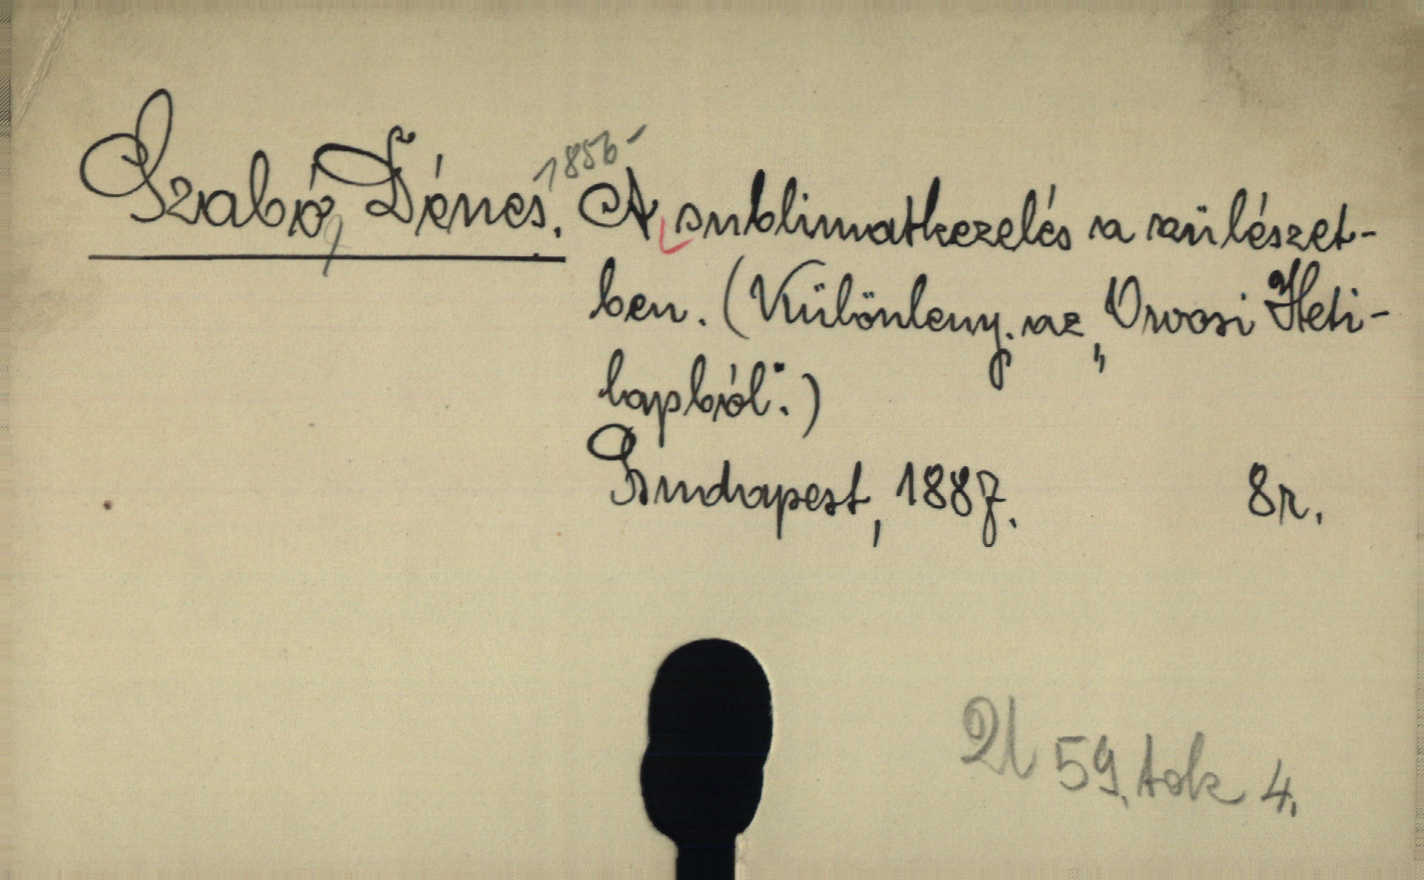 Szabó, Dénes. 1856- A sublimatkezelés a szülészet-
ben. (Különleny. az „Orvosi Heti-
lapból”.)
Budapest, 1887. 8r.
59. tok 4.